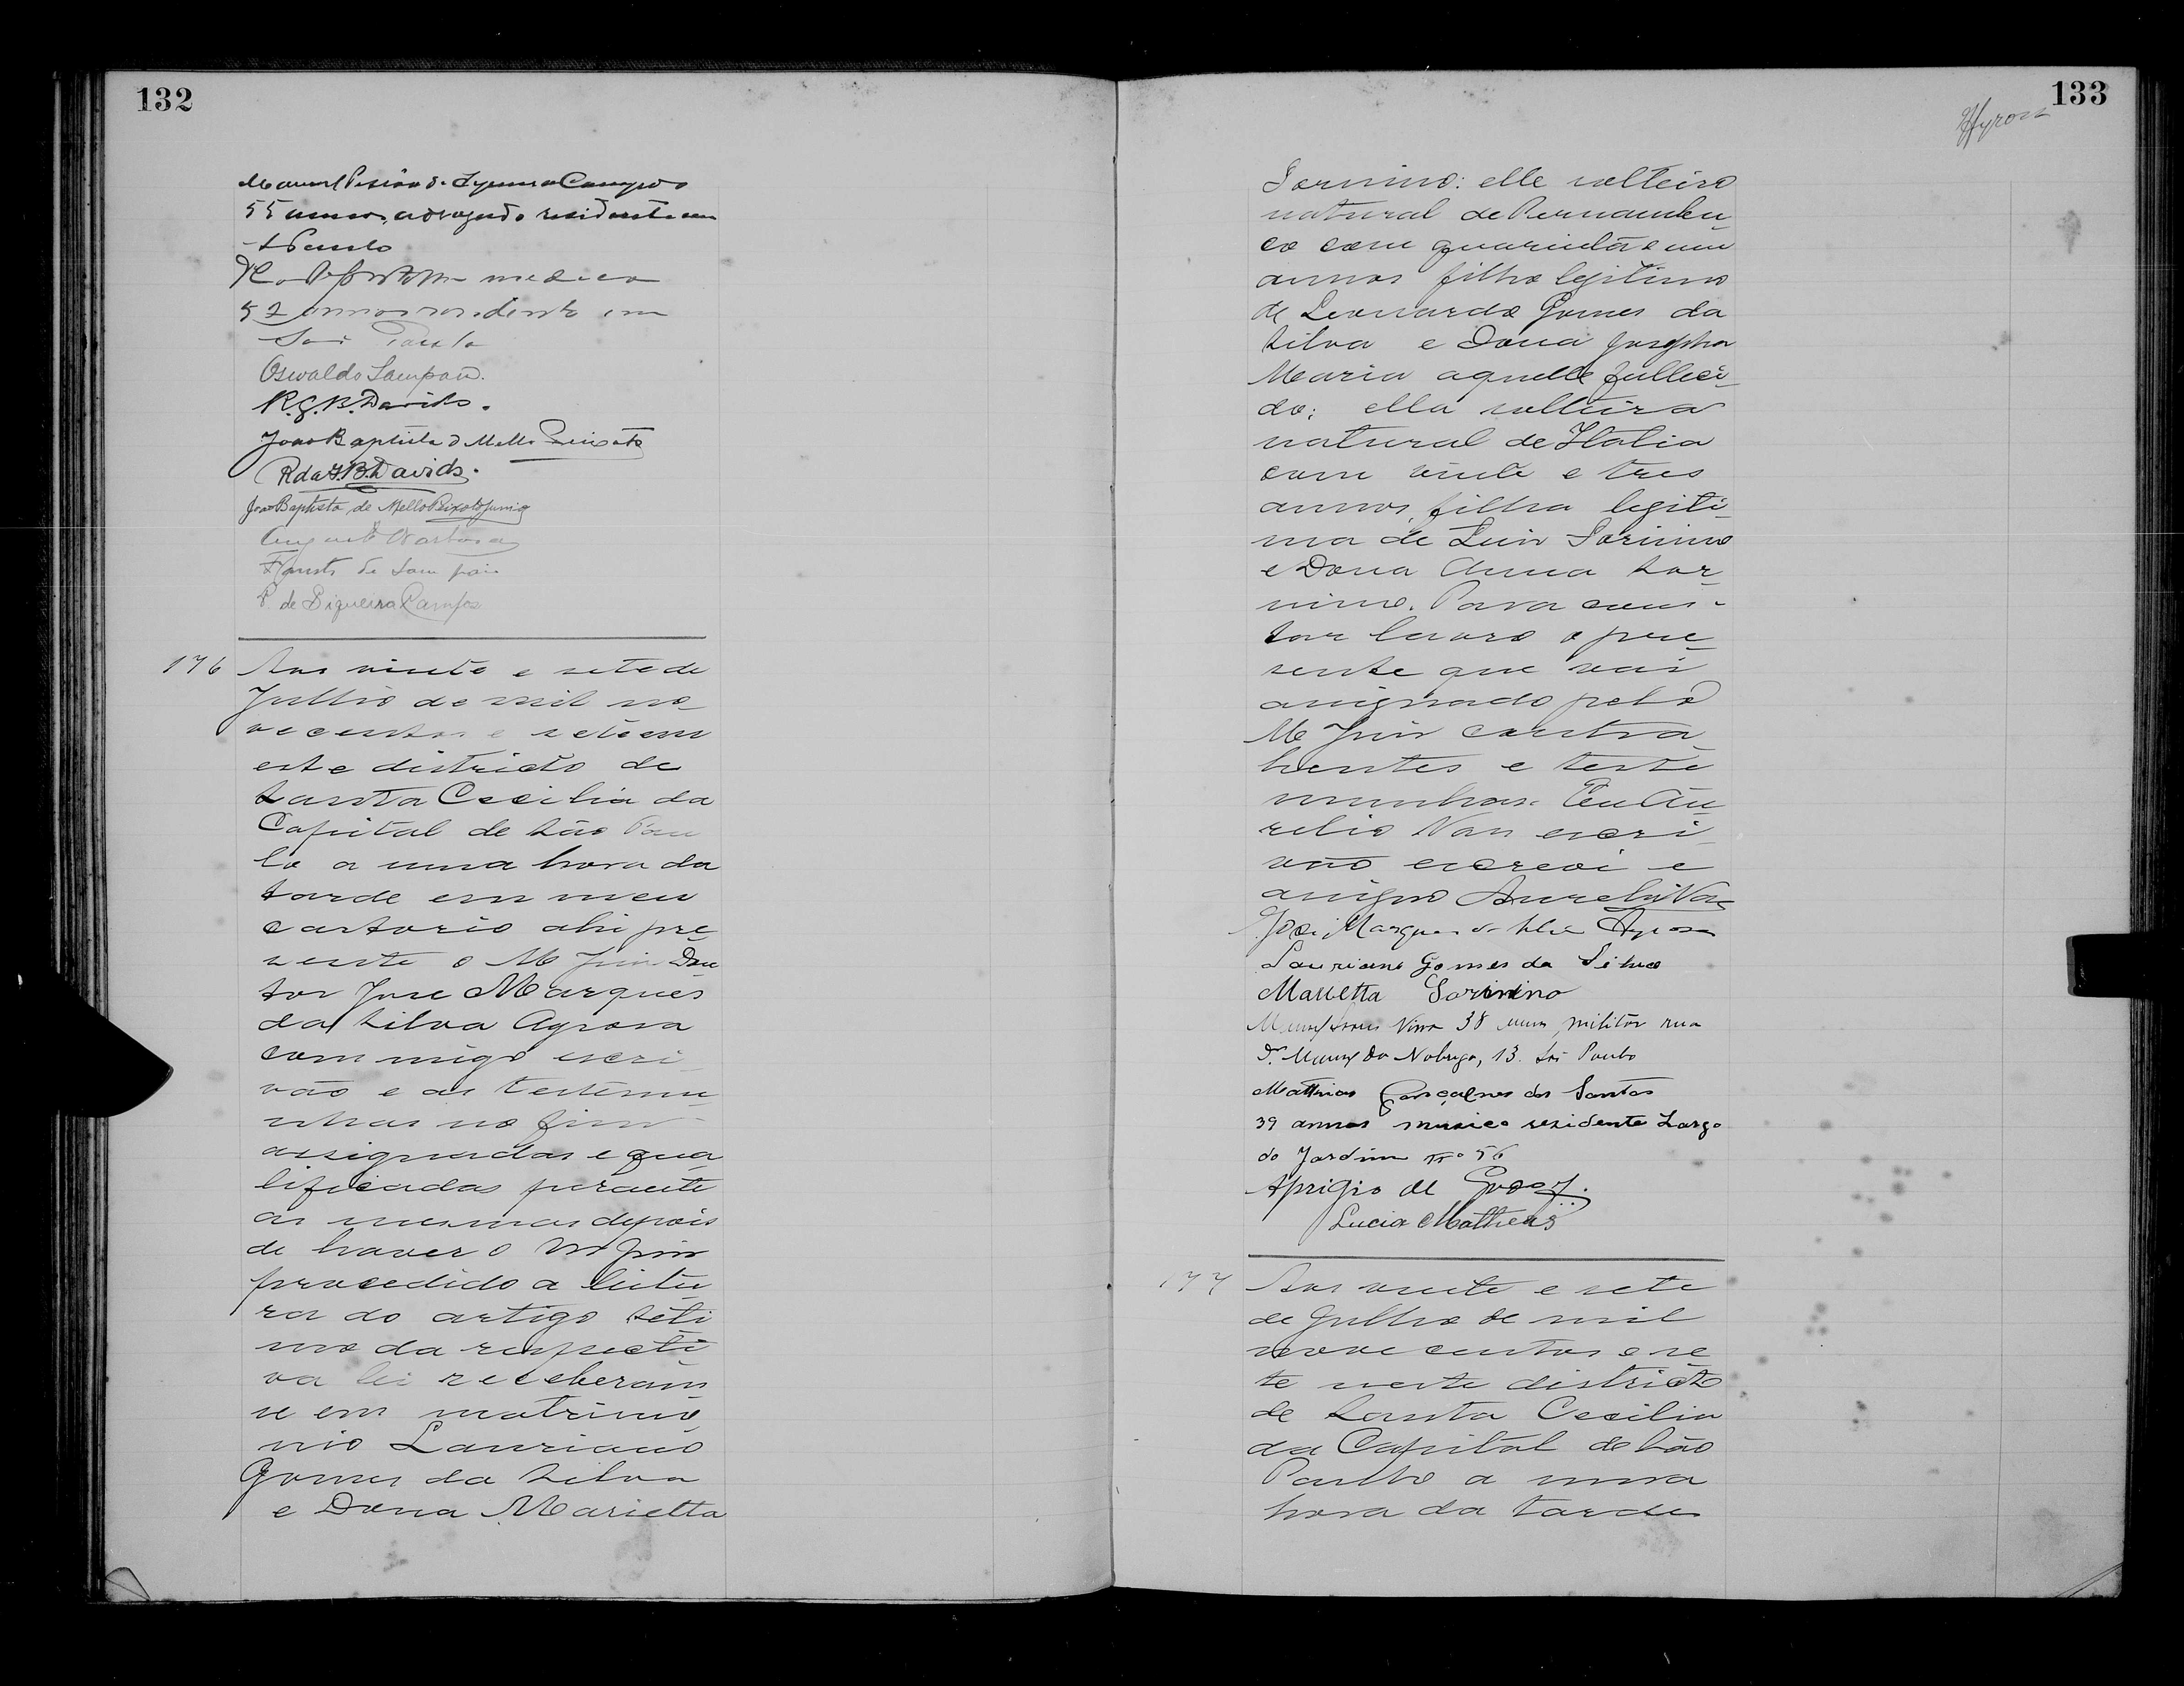 132
55 annos, advogado residente em
S Paulo
medico
52 annos residente em
São Paulo
Oswaldo Sampaio.
R. G. B. Davids.
João Baptista de Mello Peixoto
R da G. B. Davids.
João Baptista de Mello Peixoto Junior
Augusto Barbosa
Fausto de Sampaio
P. de Siqueira Campos
176 Aos vinte e sete de
Julho de mil no
vecentos e sete em
este districto de
Santa Cecilia da
Capital de São Pau
lo a uma hora da
tarde em meu
cartorio ahi pre
sente o M Juiz Dou
tor Jose Marques
da Silva Ayrosa
commigo escri
vão e as testemu
nhas no fim
assignadas e qua
lificadas perante
as mesmas depois
de haver o M Juiz
procedido a leitu
ra do artigo seti
mo da respecti
va lei receberam
se em matrimo
nio Lauriano
Gomes da Silva
e Dona Marietta
133
Ayrosa
Sorinino: elle solteiro
natural de Pernambu
co com quarenta e um
annos filho legitimo
de Leonardo Gomes da
Silva e Dona Josepha
Maria aquelle falleci
do; ella solteira
natural de Italia
com vinte e tres
annos, filha legiti
ma de Luiz Sorinino
e Dona Anna Sor
nino. Para cons
tar lavro o pre
sente que vai
assignado pelo
M Juiz contra
hentes e teste
munhas. Eu Au
relio Vaz escri
vão escrevi e
assigno Aurelio Vaz
José Marques da Silva Ayrosa
Lauriano Gomes da Silva
Marietta Sorinino
38 annos, militar rua
Dr. Manoel da Nobrega, 13. São Paulo
Mathias Gonçalves dos Santos
39 annos musico residente Largo
do Jardim nº 56
Aprigio de Godoy.
Lucia Matheus
177 Aos vinte e sete
de Julho de mil
novecentos e se
te neste districto
de Santa Cecilia
da Capital de São
Paulo a uma
hora da tarde